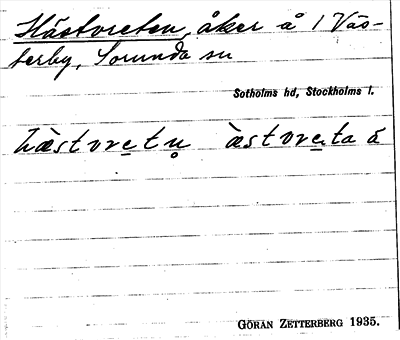 Hästvreten, åker å 1 Väs-
terby, Sorunda sn
Sotholms hd, Stockholms l.
hæ̀stvretn̥ æ̀stvreta á
GÖRAN ZETTERBERG 1935.